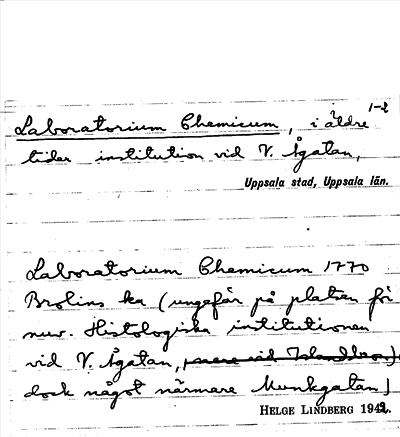 1-2
Laboratorium Chemicum, i äldre
tider institution vid V. Ågatan,
Uppsala stad, Uppsala län.
Laboratorium Chemicum 1770
Brolins ka (ungefär på platsen för
nuv. Histologiska institutionen
vid V. Ågatan,
dock något närmare Munkgatan)
HELGE LINDBERG 1942.